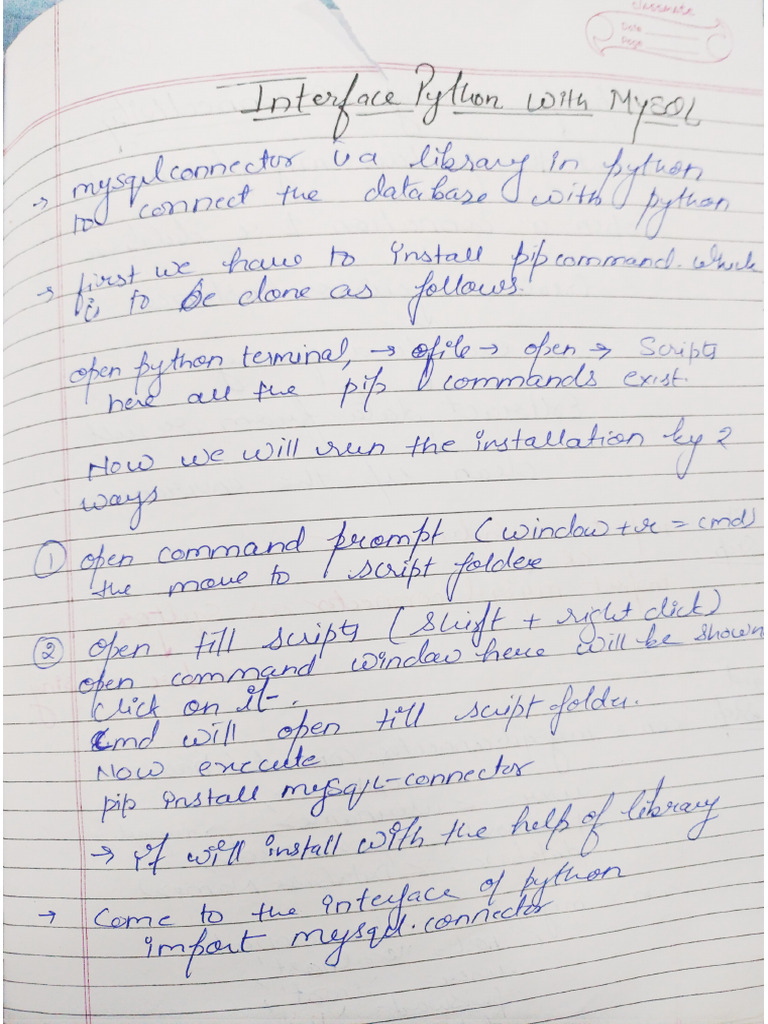 classmate
Date
Page
Interface Python with MySQL
→ mysqlconnector is a library in python
to connect the database with python
→ first we have to install pip command. which
is to be done as follows.
open python terminal, → file → open → Scripts
here all the pip commands exist.
Now we will run the installation by 2
ways
① open command prompt (window + r = cmd)
the move to script folder
② open till scripts (shift + right click)
open command window here will be shown
click on it.
cmd will open till script folder.
Now execute
pip install mysql-connector
→ it will install with the help of library
→ Come to the interface of python
import mysql.connector